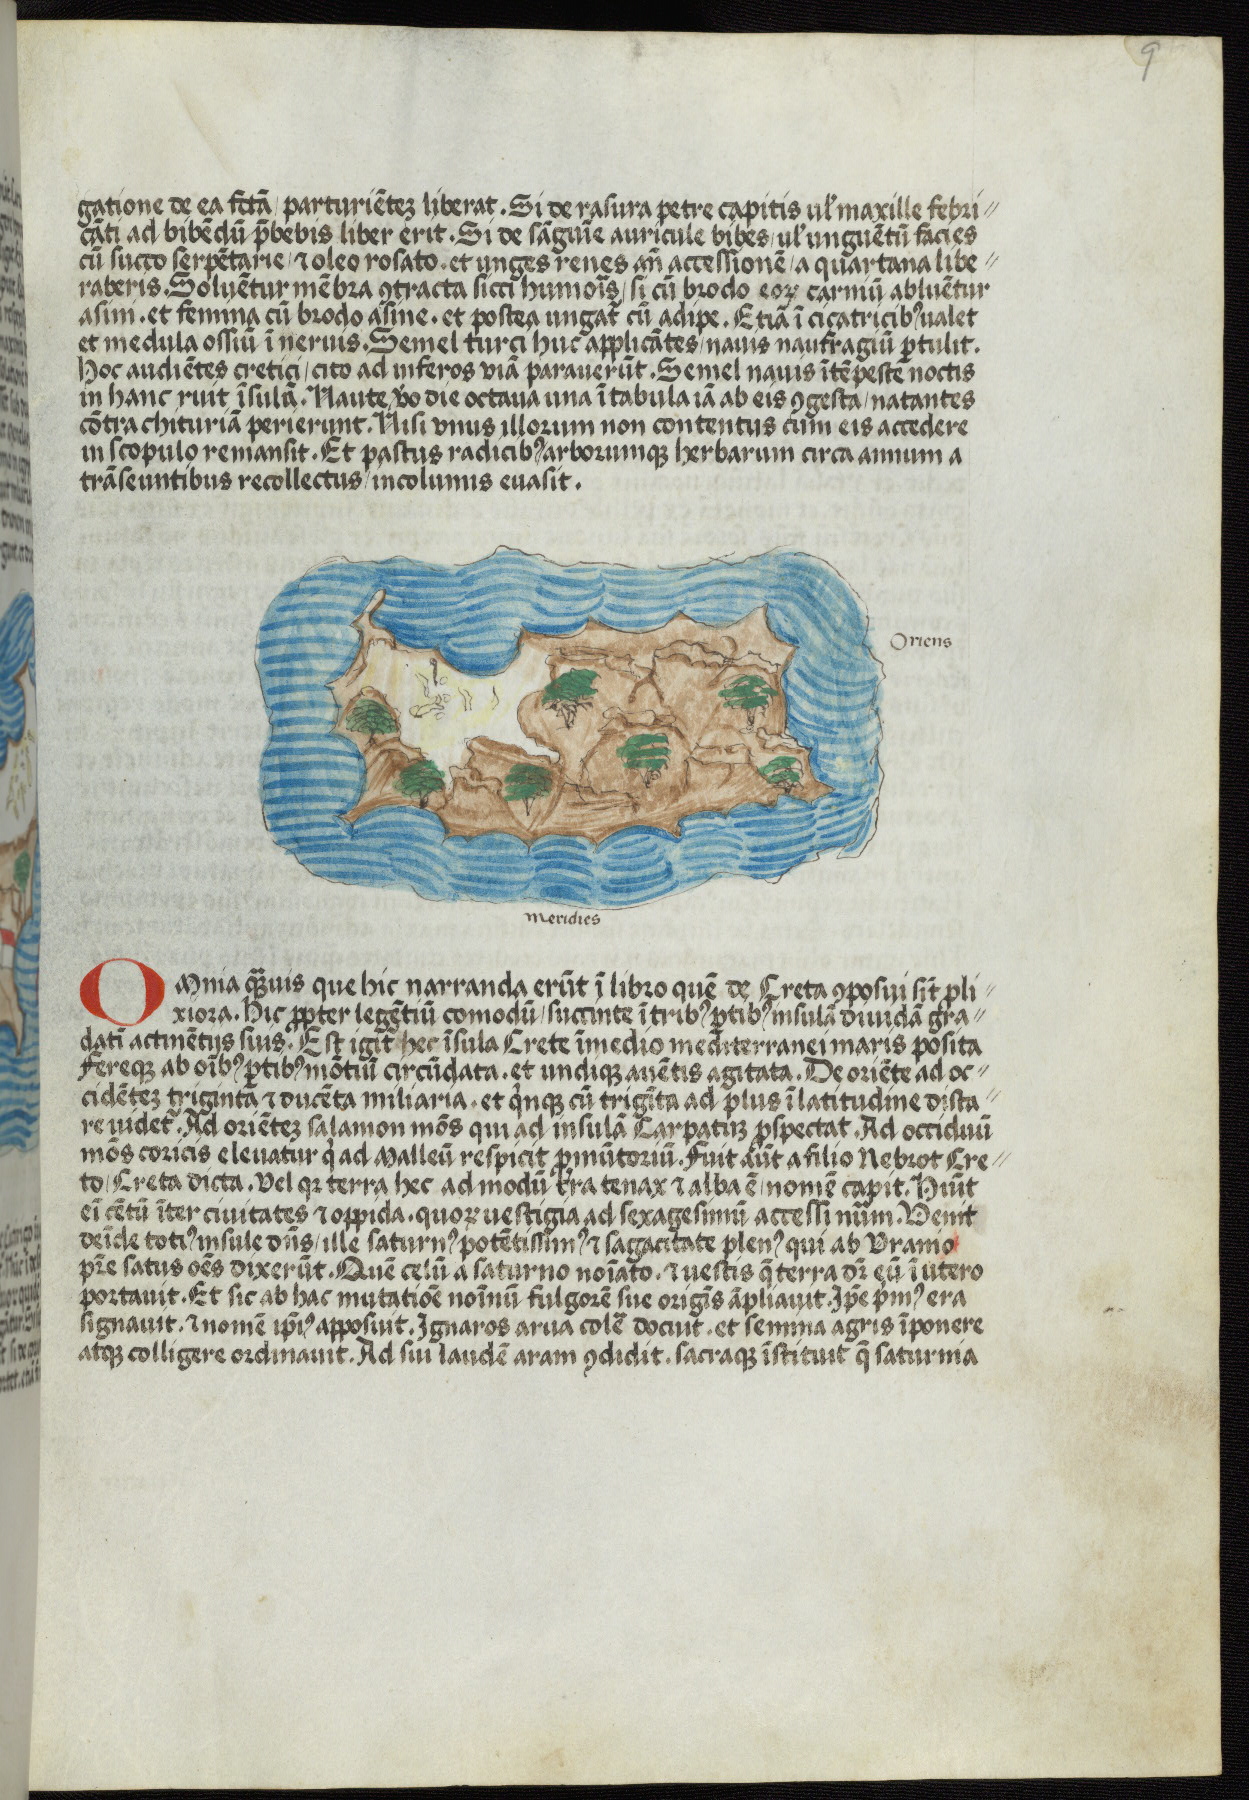 9
gatione de ea fctā / parturiētez liberat. Si de rasura petre capitis ul' maxille febri//
cāti ad bibēdū p̄bebis liber erit. Si de sāguīe auricule bibes / ul' unguētū facies
cū succo serpētarie / ⁊ oleo rosato. et unges renes an̄ accessionē / a quartana libe//
raberis. Soluētur mēbra ꝯtracta sicci humoīs / si cū brodo eoꝝ carniū abluētur
asini. et femina cū brodo asine. et postea ungat̄ cū adipe. Etiā ī cicatricibꝰ ualet
et medula ossiū ī neruis. Semel turci huc applicātes / nauis naufragiū ꝑtulit.
Hoc audiētes cretici / cito ad inferos viā parauerūt. Semel nauis ītēpeste noctis
in hanc ruit īsulā. Naute v̊o die octaua una ī tabula iā ab eis ꝯgesta / natantes
cōtra chituriā perierunt. Nisi vnus illorum non contentus cum eis accedere
in scopulo remansit. Et pastus radicibꝰ arborumqꝫ herbarum circa annum a
trāseuntibus recollectus / incolumis euasit.
Oriens
Meridies
OMnia q̄uis que hic narranda erūt ī libro quē de Creta ꝯposui sīt ꝓli//
xiora. Hic ꝓpter legētiū comodū / succinte ī tribꝰ ꝑtibꝰ insulā diuidā gra//
datī actinētijs suis. Est igit̄ hec īsula Crete īmedio mediterranei maris posita
Fereqꝫ ab oībꝰ ꝑtibꝰ mōtiū circūdata. et undiqꝫ auētis agitata. De oriēte ad oc//
cidētez triginta ⁊ ducēta miliaria. et qͥnqꝫ cū trigīta ad plus ī latitudine dista//
re uidet̄. Ad oriētez salamon mōs qui ad insulā Carpatuz ꝓspectat. Ad occiduū
mōs coricis eleuatur qͥ ad Malleū respicit ꝓmūtoriū. Fuit aūt a filio Nebrot Cre//
to / Creta dicta. Vel qꝛ terra hec ad modū t̄ra tenax ⁊ alba ē / nomē capit. Hūit
eī cētū īter ciuitates ⁊ oppida. quoꝝ uestigia ad sexagesimū accessi nūm. Venit
deīde totiꝰ insule dn̄s / ille saturnꝰ potētissimꝰ ⁊ sagacitate plenꝰ qui ab Vranio
pr̄e satus oēs dixerūt. Quē celū a saturno noīato. ⁊ uestis q̄ terra dr̄ eū ī utero
portauit. Et sic ab hac mutatiōe noīnū fulgorē sue origīs āpliauit. Ip̄e p̄mꝰ era
signauit. ⁊ nomē ip̄iꝰ apposuit. Ignaros arua colē docuit. et semina agris īponere
atqꝫ colligere ordinauit. Ad sui laudē aram ꝯdidit. sacraqꝫ īstituit q̄ saturnia